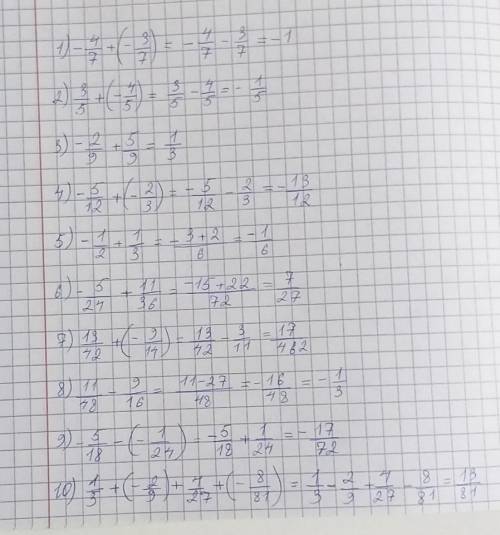 1) -4/7 + (-3/7) = -4/7 - 3/7 = -1
2) 3/5 + (-4/5) = 3/5 - 4/5 = -1/5
3) -2/9 + 5/9 = 1/3
4) -5/12 + (-2/3) = -5/12 - 2/3 = -13/12
5) -1/2 + 1/3 = -3+2/6 = -1/6
6) -5/24 + 11/36 = -15+22/72 = 7/27
7) 13/42 + (-3/11) - 13/42 - 3/11 = 17/462
8) 11/48 - 9/16 = 11-27/48 = -16/48 = -1/3
9) -5/18 - (-1/24) = -5/18 + 1/24 = -17/72
10) 1/3 + (-2/9) + 4/27 + (-8/81) = 1/3 - 2/9 + 4/27 - 8/81 = 13/81